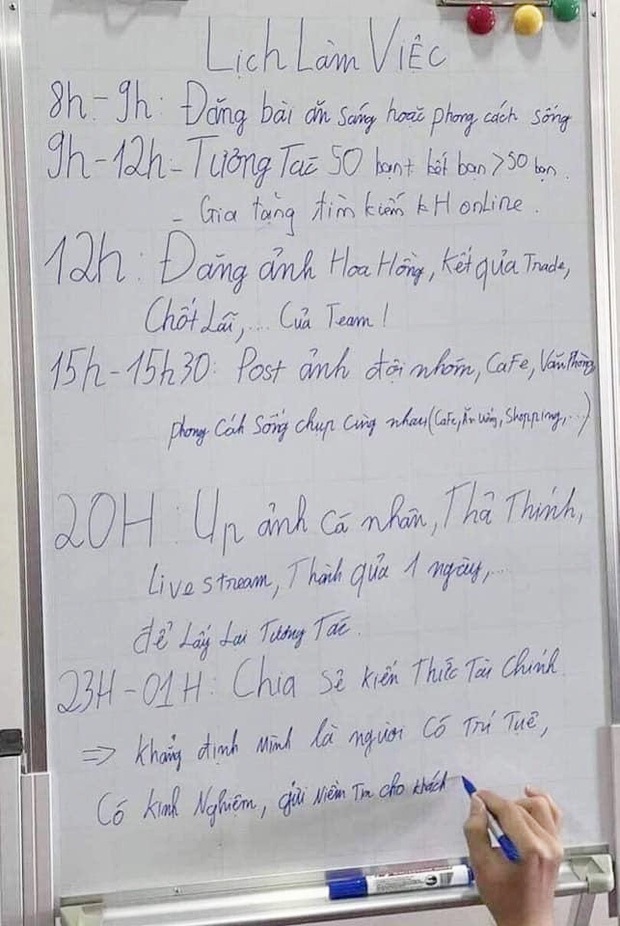 Lịch Làm Việc
8h-9h: Đăng bài ăn sáng hoặc phong cách sống
9h-12h - Tương Tác 50 bạn + kết bạn > 50 bạn.
- Gia tăng tìm kiếm KH online.
12h: Đăng ảnh Hoa Hồng, kết quả Trade,
Chốt Lãi,... Của Team!
15h-15h30: Post ảnh đội nhóm, CaFe, Văn Phòng
phong Cách Sống chụp Cùng nhau (Cafe, Ăn uống, Shopping,...)
20H: Up ảnh cá nhân, Thả Thính,
Livestream, Thành quả 1 ngày,...
để Lấy Lại Tương Tác.
23H-01H: Chia sẻ kiến Thức Tài Chính.
=> Khẳng định Mình là người Có Trí Tuệ,
Có Kinh Nghiệm, gửi Niềm Tin cho khách